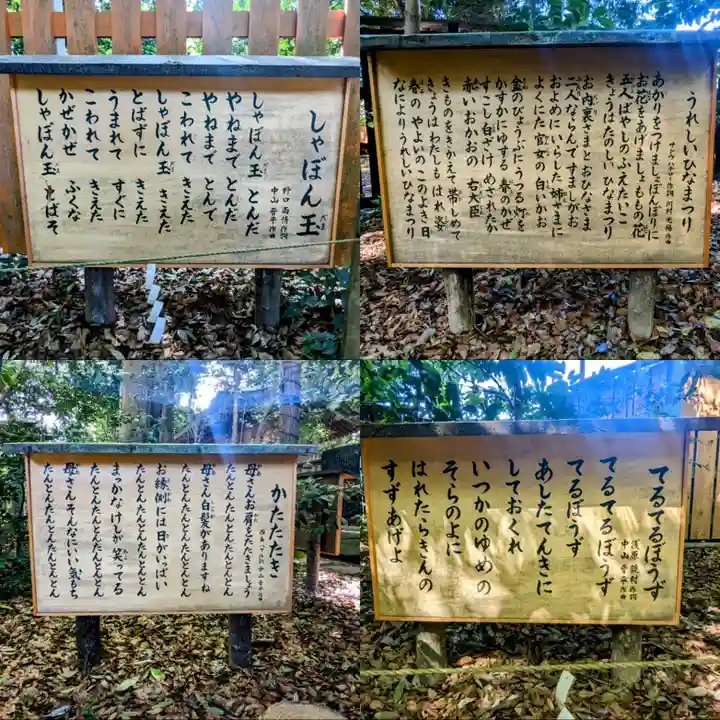 しゃぼん玉
だま
野口 雨情作詞
中山 晋平作曲
しゃぼん玉 とんだ
だま
やねまで とんだ
やねまで とんで
こわれて きえた
しゃぼん玉 きえた
だま
とばずに きえた
うまれて すぐに
こわれて きえた
かぜかぜ ふくな
しゃぼん玉 とばそ
だま
うれしいひなまつり
サトウハチロー作詞 河村 光陽作曲
あかりをつけましょぼんぼりに
お花をあげましょももの花
五人ばやしのふえたいこ
きょうはたのしい ひなまつり
お内裏さまと おひなさま
二人ならんで すましがお
およめにいらした 姉さまに
よくにた官女の 白いかお
金のびょうぶに うつる灯を
かすかにゆする 春のかぜ
すこし白ざけ めされたか
赤いおかおの 右大臣
きものをきかえて 帯しめて
きょうはわたしも はれ姿
春のやよいの このよき日
なによりうれしい ひなまつり
かたたたき
西条 八十作詞 中山 晋平作曲
母さんお肩をたたきましょう
たんとんたんとんたんとんとん
母さん白髪がありますね
たんとんたんとんたんとんとん
お縁側には日がいっぱい
たんとんたんとんたんとんとん
まっかなけしが笑ってる
たんとんたんとんたんとんとん
母さんそんなにいい気もち
たんとんたんとんたんとんとん
てるてるぼうず
浅原 鏡村作詞
中山 晋平作曲
てるてるぼうず
てるぼうず
あしたてんきに
しておくれ
いつかのゆめの
そらのよに
はれたらきんの
すずあげよ